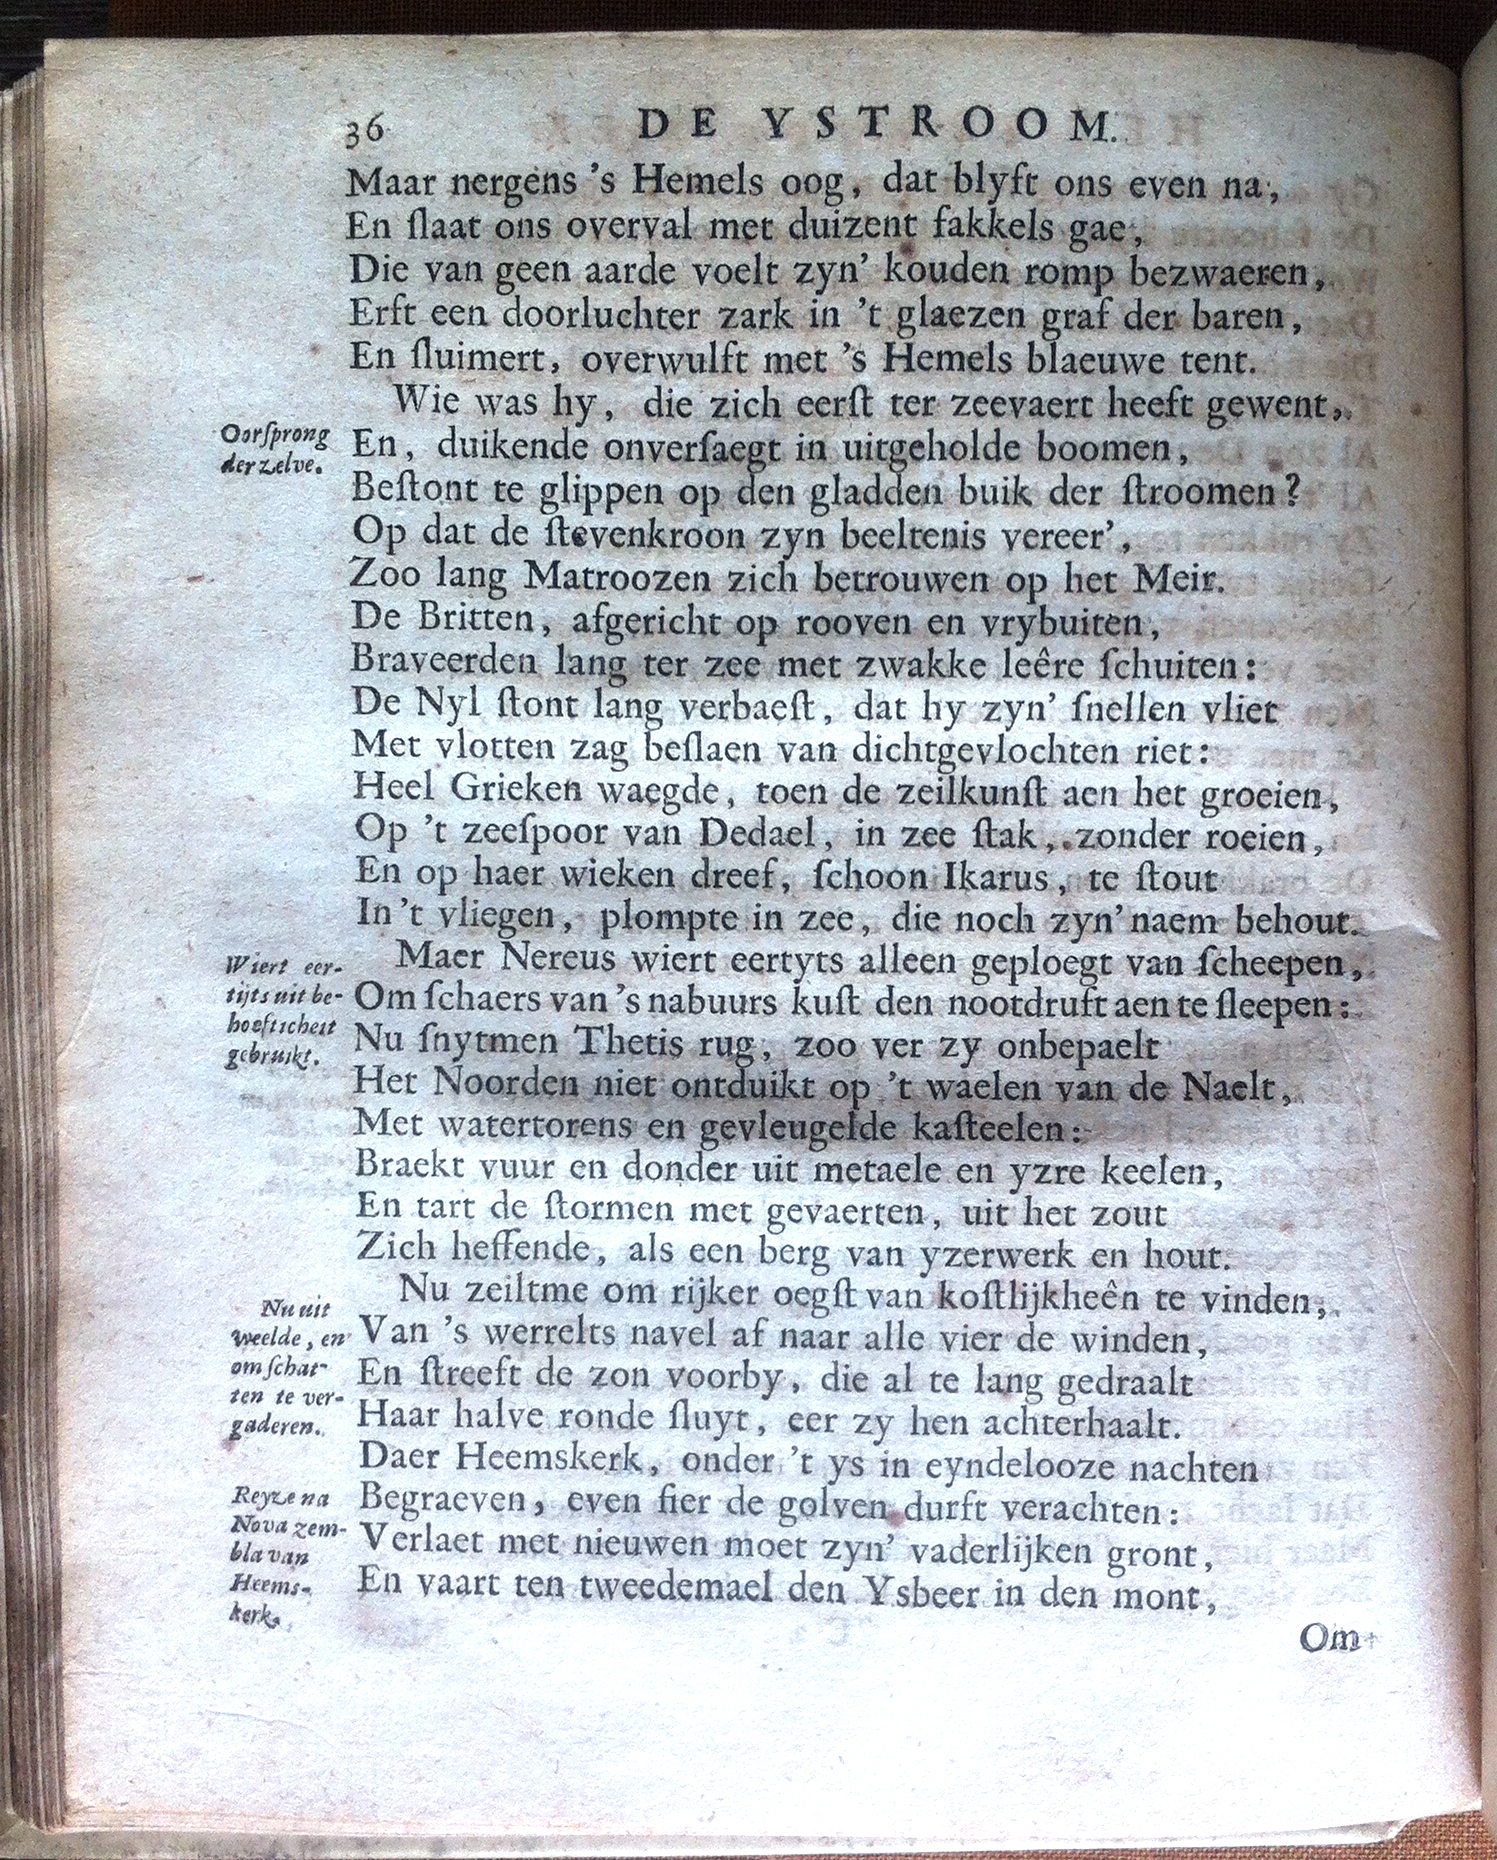 36 DE YSTROOM.
Maar nergens 's Hemels oog, dat blyft ons even na,
En ſlaat ons overval met duizent fakkels gae,
Die van geen aarde voelt zyn' kouden romp bezwaeren,
Erft een doorluchter zark in 't glaezen graf der baren,
En ſluimert, overwulft met 's Hemels blaeuwe tent.
Wie was hy, die zich eerſt ter zeevaert heeft gewent,
Oorſprong
der zelve.
En, duikende onverſaegt in uitgeholde boomen,
Beſtont te glippen op den gladden buik der ſtroomen?
Op dat de ſtevenkroon zyn beeltenis vereer',
Zoo lang Matroozen zich betrouwen op het Meir.
De Britten, afgericht op rooven en vrybuiten,
Braveerden lang ter zee met zwakke leêre ſchuiten:
De Nyl ſtont lang verbaeſt, dat hy zyn' ſnellen vliet
Met vlotten zag beſlaen van dichtgevlochten riet:
Heel Grieken waegde, toen de zeilkunſt aen het groeien,
Op 't zeeſpoor van Dedael, in zee ſtak, zonder roeien,
En op haer wieken dreef, ſchoon Ikarus, te ſtout
In 't vliegen, plompte in zee, die noch zyn' naem behout.
Wiert eer-
tijts uit be-
hoefticheit
gebruikt.
Maer Nereus wiert eertyts alleen geploegt van ſcheepen,
Om ſchaers van 's nabuurs kuſt den nootdruft aen te ſleepen:
Nu ſnytmen Thetis rug, zoo ver zy onbepaelt
Het Noorden niet ontduikt op 't waelen van de Naelt,
Met watertorens en gevleugelde kaſteelen:
Braekt vuur en donder uit metaele en yzre keelen,
En tart de ſtormen met gevaerten, uit het zout
Zich heffende, als een berg van yzerwerk en hout.
Nu zeiltme om rijker oegſt van koſtlijkheên te vinden,
Nu uit
weelde, en
om ſchat-
ten te ver-
gaderen.
Van 's werrelts navel af naar alle vier de winden,
En ſtreeft de zon voorby, die al te lang gedraalt
Haar halve ronde ſluyt, eer zy hen achterhaalt.
Daer Heemskerk, onder 't ys in eyndelooze nachten
Reyze na
Nova zem-
bla van
Heems-
kerk.
Begraeven, even fier de golven durft verachten:
Verlaet met nieuwen moet zyn' vaderlijken gront,
En vaart ten tweedemael den Ysbeer in den mont,
Om